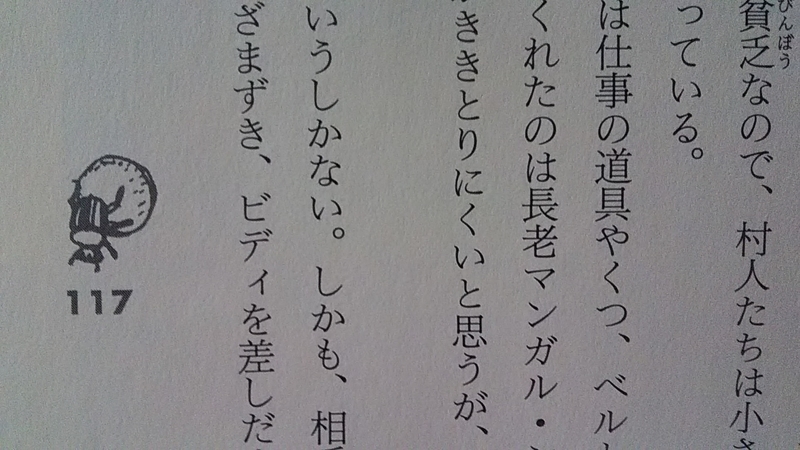 貧乏なので、村人たちは小さ
びんぼう
っている。
は仕事の道具やくつ、ベル
くれたのは長老マンガル・
ききとりにくいと思うが、
いうしかない。しかも、相
ざまずき、ビディを差しだ
117